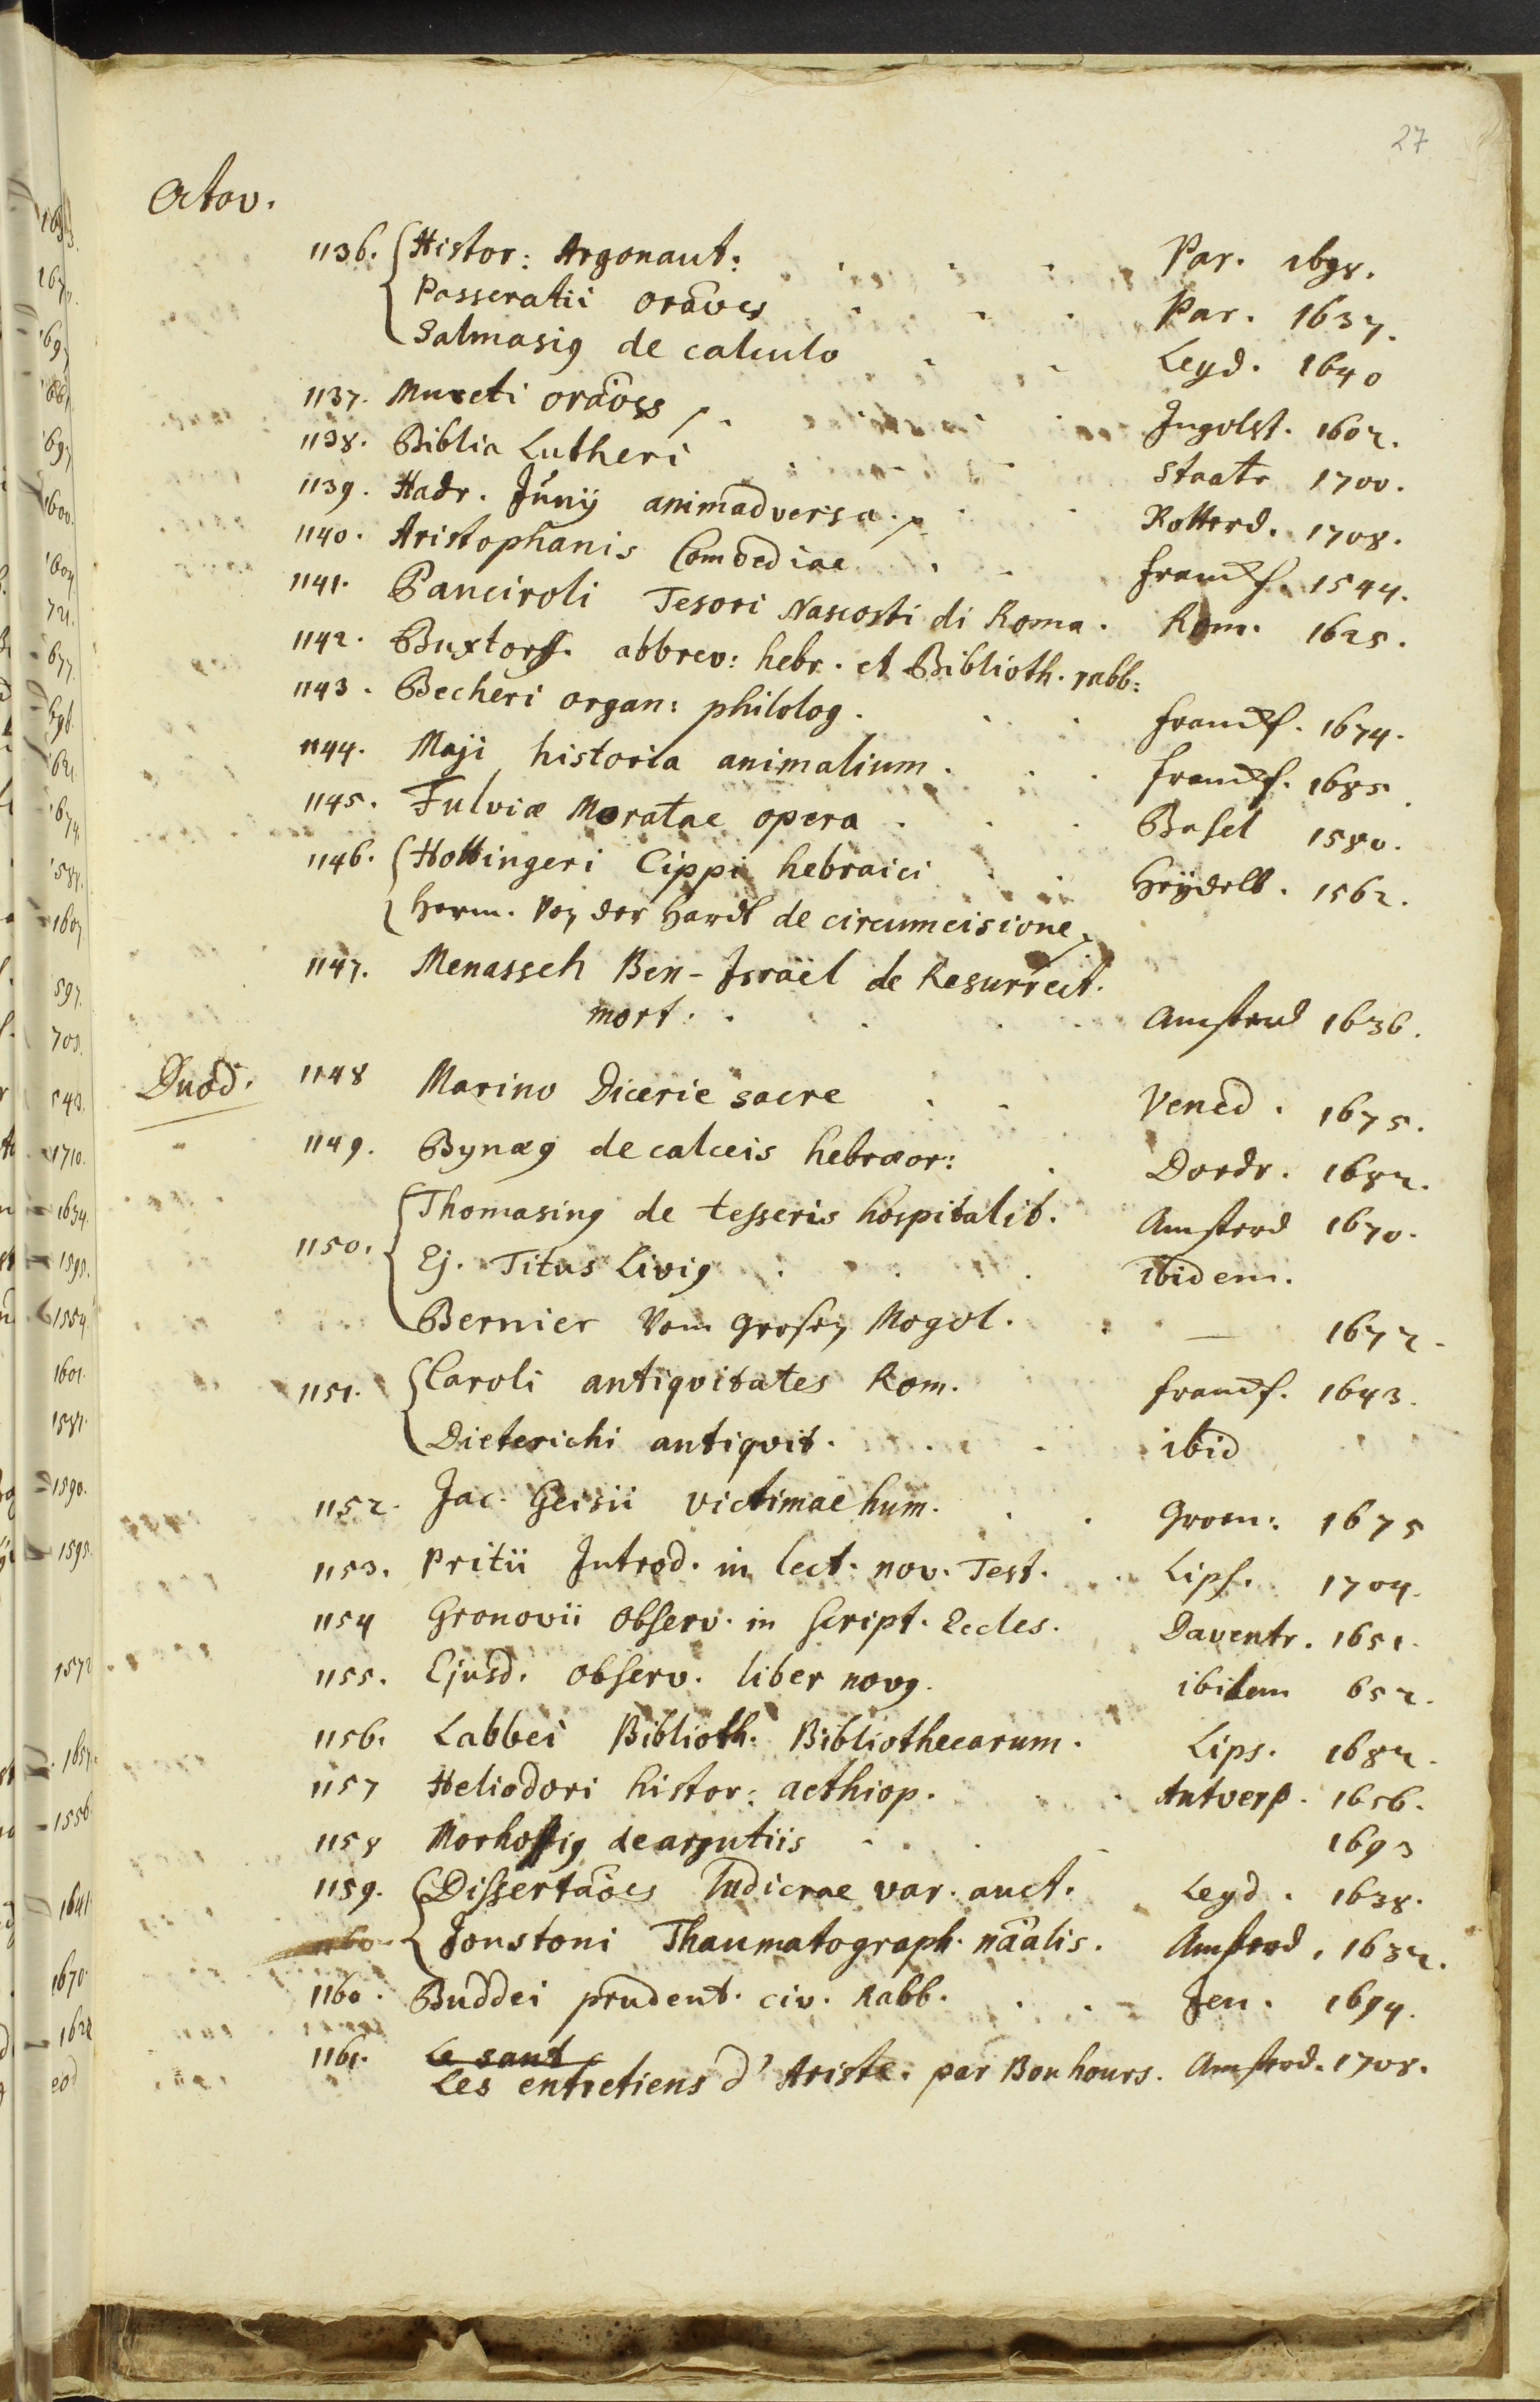 27
Octav.
1136. Histor: Argonaut: Par. 1698.
Passeratii orãoes Par. 1637.
Salmasiꝰ de calculo Leyd. 1640
1137. Mureti orãoes Ingolst. 1602.
1138. Biblia Lutheri Staade 1700.
1139. Hadr. Junij animadversa. Rotterd. 1708.
1140. Aristophanis Comoediae Francf. 1544.
1141. Panciroli Tesori Nascosti di Roma. Rom. 1625.
1142. Buxtorf. abbrev: hebr. et Biblioth. rabb:
1143. Becheri organ: philolog. Francf. 1674.
1144. Maji historia animalium. Francf. 1685
1145. Fulviæ Moratae opera Basel 1580.
1146. Hottingeri Cippi hebraici Heydelb. 1562.
Herm. Von der Hardt de circumcisione
1147. Menasseh Ben-Israël de Resurrect.
mort. Amsterd 1636.
Duod. 1148 Marino Dicerie sacre Vened. 1675.
1149. Bynæꝰ de calceis hebræor: Dordr. 1682.
1150. Thomasinꝰ de tesseris hospitalit. Amsterd 1670.
Ej. Titus Liviꝰ ibidem.
Bernier Vom Großen Mogol. — 1672.
1151. Caroli antiqvitates Rom. Francf. 1643.
Dieterichi antiqvit. ibid
1152. Jac. Geisii victimae hum. Groen: 1675
1153. Pritii Introd. in lect. nov. Test. Lips. 1704.
1154 Gronovii Observ. in Script. Eccles. Daventr. 1651.
1155. Ejusd. Observ. liber novꝰ. ibidem 652.
1156. Labbei Biblioth. Bibliothecarum. Lips. 1682.
1157 Heliodori histor: aethiop. Antverp. 1656.
1158 Morhofiꝰ de argutiis 1693
1159. Dissertãoes ludicrae var. auct. Leyd. 1638.
1160 Jonstoni Thaumatograph. nãalis. Amsterd. 1632.
1160. Buddei prudent. civ. Rabb. Jen. 1694.
1161. Le sant
Les entretiens d'Ariste. par Bouhours. Amsterd. 1708.